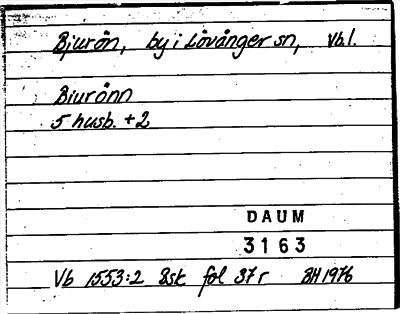 Bjurön, by i Lövånger sn, Vb.l.
Biurönn
5 husb. + 2
DAUM
3163
Vb 1553:2 Bsk fol 37r BH 1976